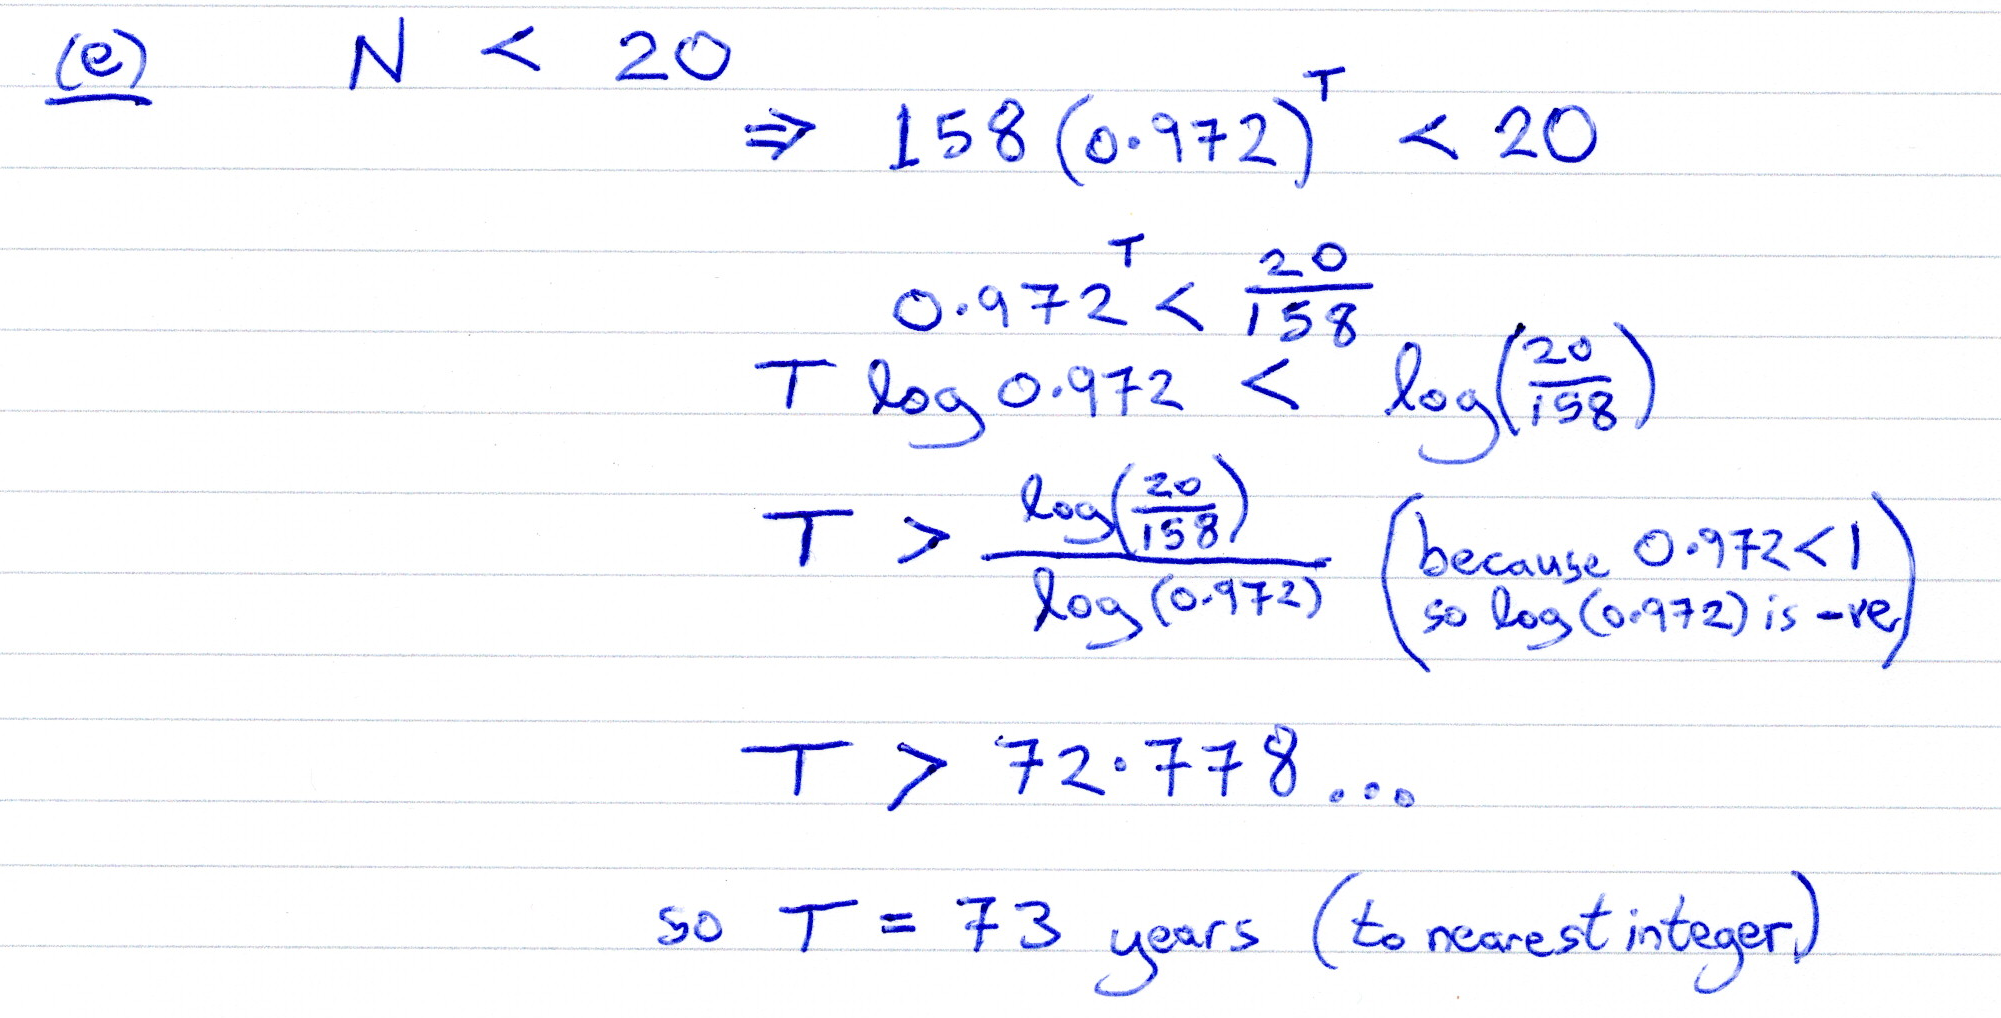 (e) N < 20
⇒ 158(0.972)^T < 20
0.972^T < 20/158
T log 0.972 < log(20/158)
T > log(20/158)/log(0.972) (because 0.972<1 so log(0.972) is -ve)
T > 72.778...
so T = 73 years (to nearest integer)